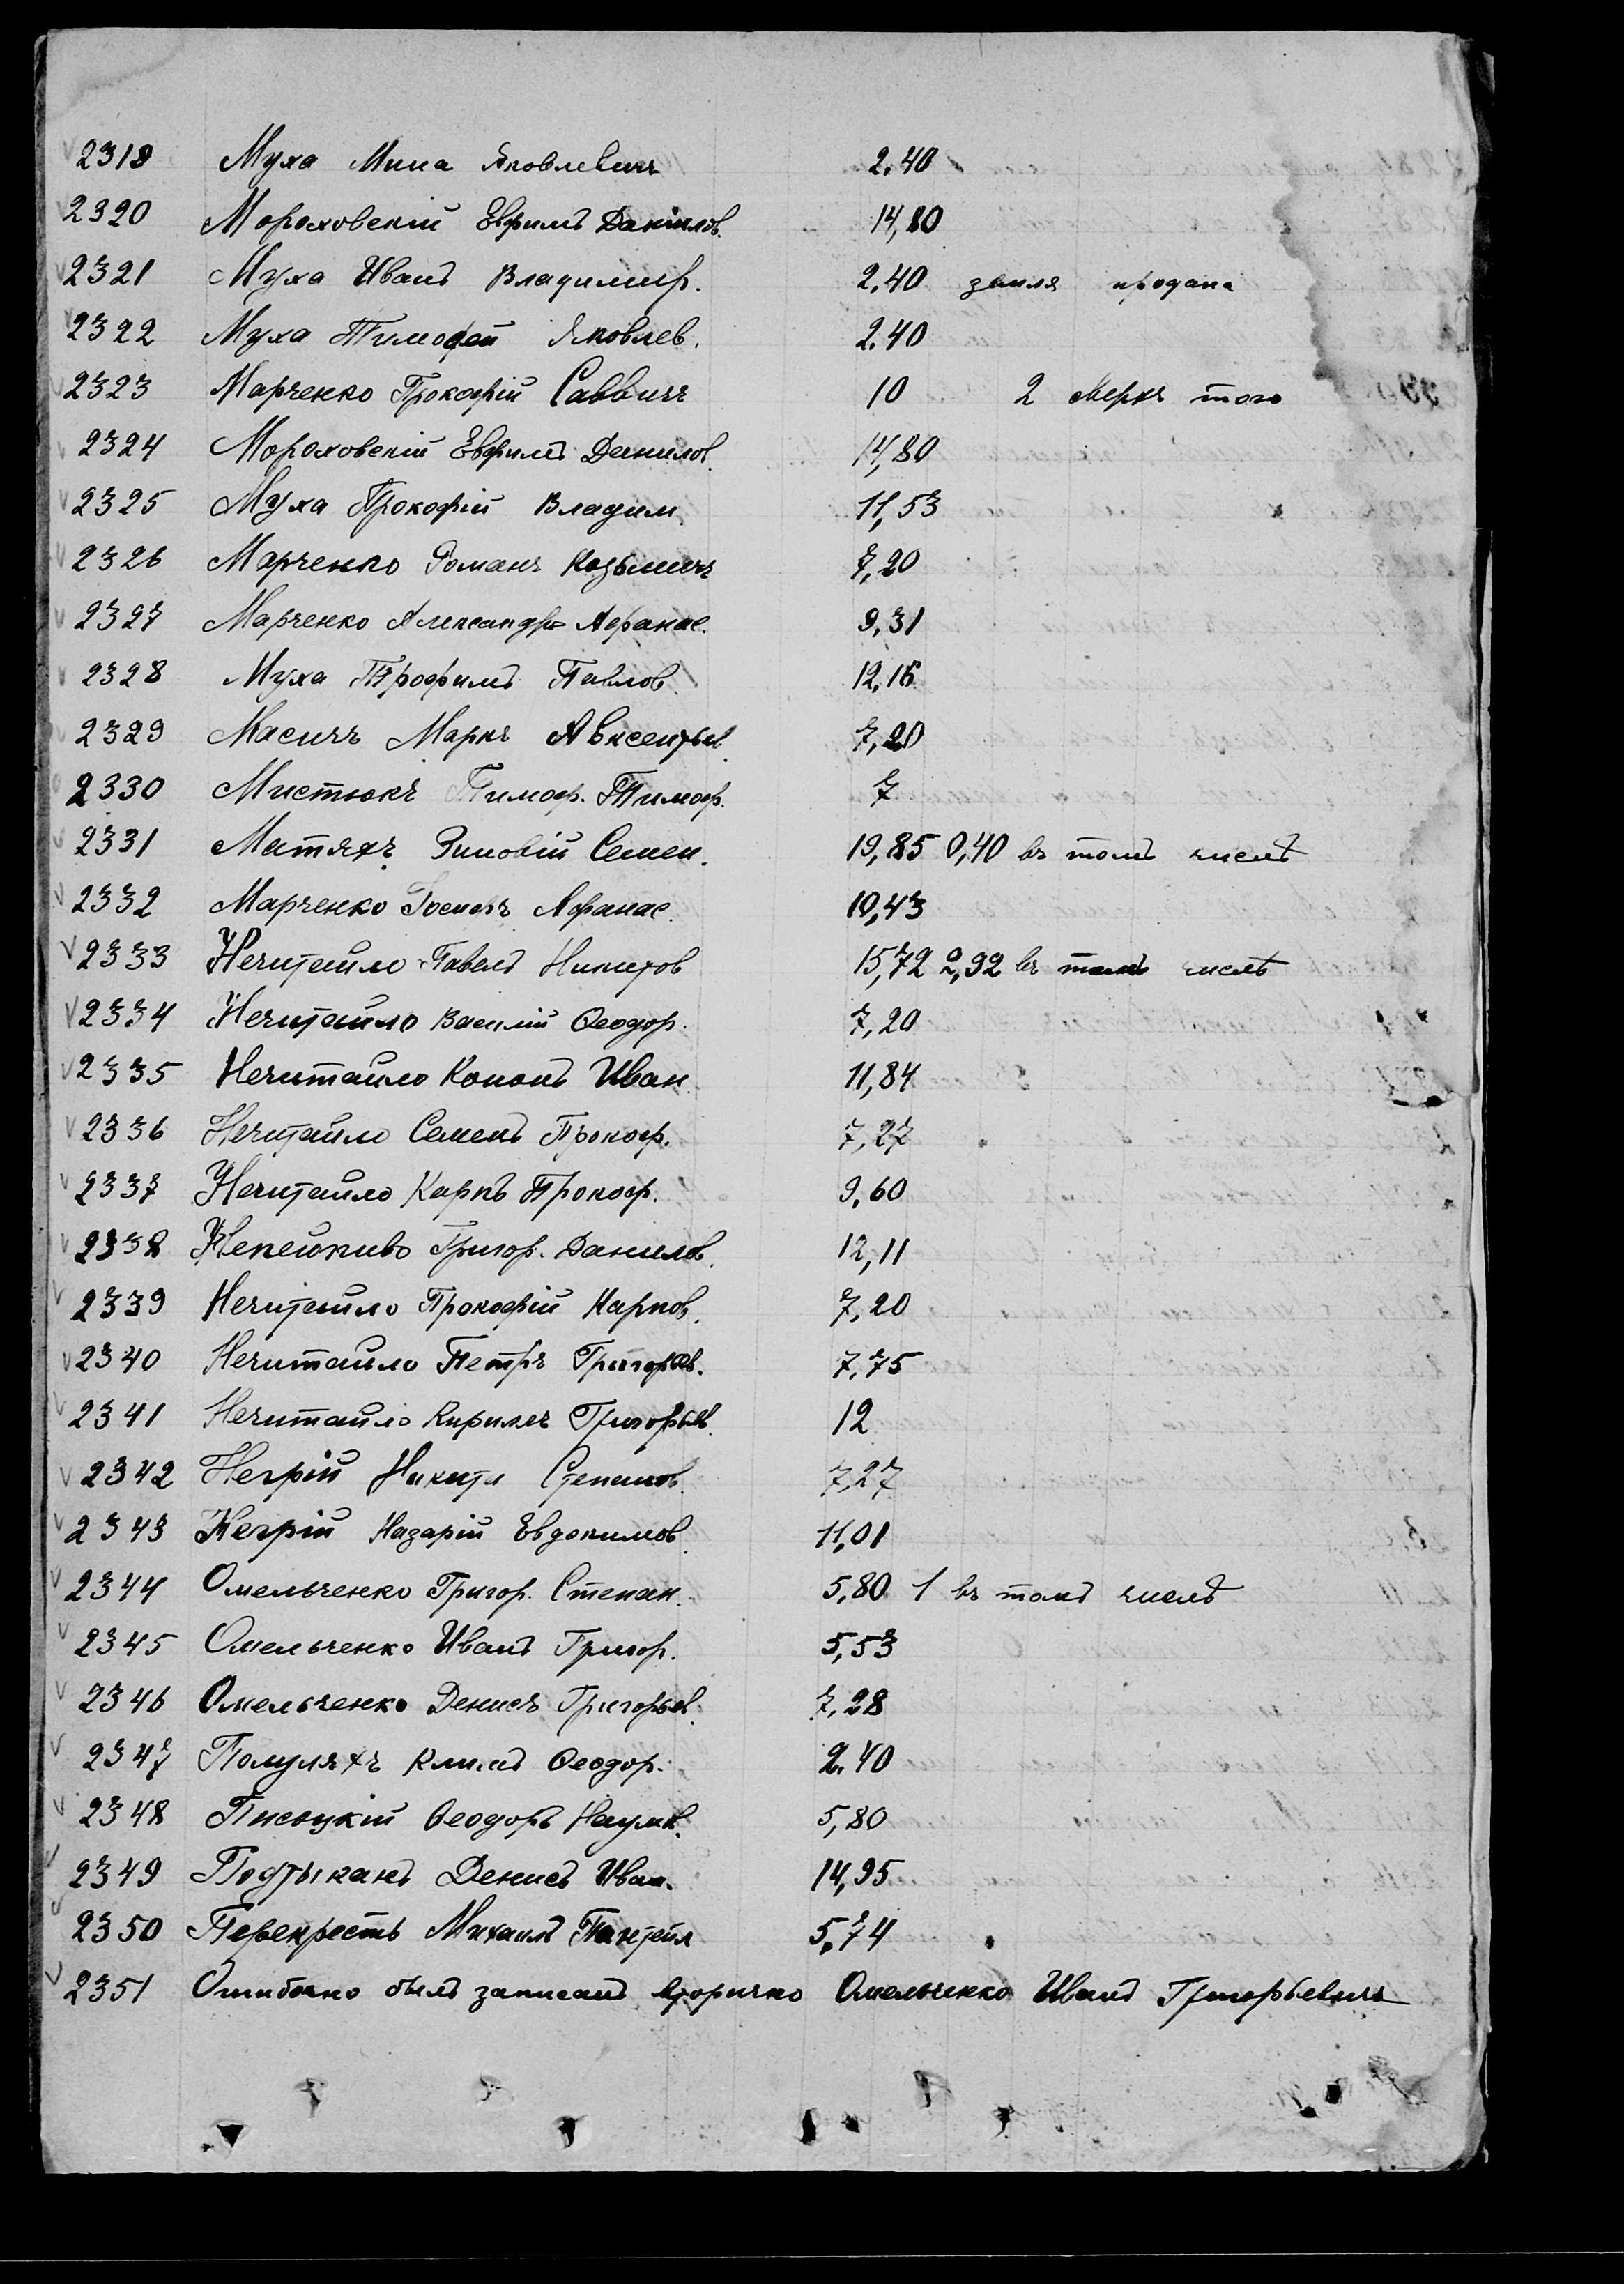 2319 Муха Мина Яковлевичъ 2.40
2320 Мораховскій Ефимъ Данилов. 14,80
2321 Муха Иванъ Владимир. 2.40 земля продана
2322 Муха Тимофей Яковлев. 2.40
2323 Марченко Прокофій Саввичъ 10 2 сверхъ того
2324 Мораховскій Евфимъ Данилов. 14,80
2325 Муха Прокофій Владим. 11,53
2326 Марченко Романъ Козьмичъ 7,20
2327 Марченко Александръ Афанас. 9,31
2328 Муха Трофимъ Павлов. 12,16
2329 Масичъ Маркъ Авксентьев. 7,20
2330 Мистюкъ Тимоф. Тимоф. 7
2331 Матяхъ Зиновій Семен. 19,85 0,40 въ томъ числѣ
2332 Марченко Іосифъ Афанас. 10,43
2333 Нечитайло Павелъ Никитов 15,72 2,92 въ томъ числѣ
2334 Нечитайло Василій Ѳеодор. 7,20
2335 Нечитайло Кононъ Иван. 11,84
2336 Нечитайло Семенъ Прокоф. 7,27
2337 Нечитайло Карпъ Прокоф. 9,60
2338 Непейпиво Григор. Данилов. 12,11
2339 Нечитайло Прокофій Карпов. 7,20
2340 Нечитайло Петръ Григорьев. 7,75
2341 Нечитайло Кириллъ Григорьев. 12
2342 Негрій Никита Степанов. 7,27
2343 Негрій Назарій Евдокимов. 11,01
2344 Омельченко Григор. Степан. 5,80 1 въ томъ числѣ
2345 Омельченко Иванъ Григор. 5,53
2346 Омельченко Денисъ Григорьев. 7,28
2347 Полуляхъ Климъ Ѳеодор. 2.40
2348 Писоцкій Ѳеодоръ Наумов. 5,80
2349 Подтыканъ Денисъ Иван. 14,95
2350 Перекрестъ Михаилъ Пантейл 5,74
2351 Ошибочно былъ записанъ вторично Омельченко Иванъ Григорьевичъ